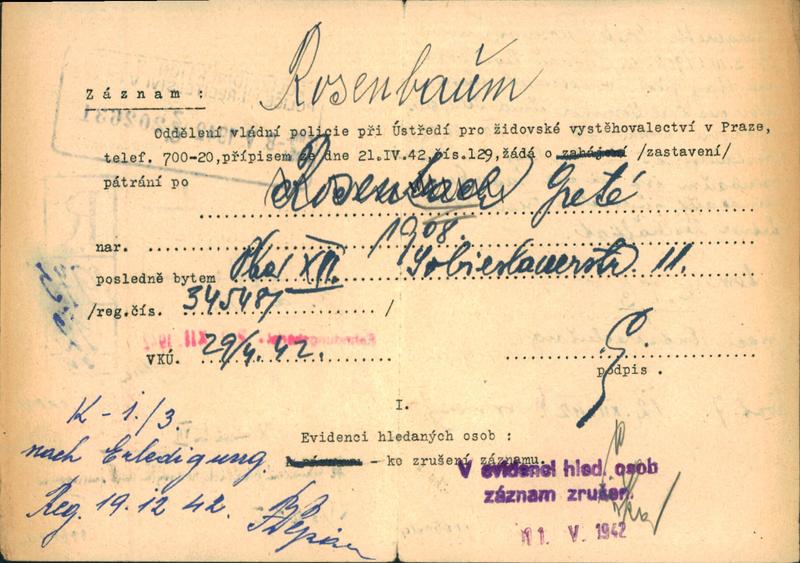 Rosenbaŭm
Záznam :
Oddělení vládní policie při Ústředí pro židovské vystěhovalectví v Praze,
telef. 700-20, přípisem ze dne 21.IV.42, čís.129, žádá o zahájení /zastavení/
pátrání po Greté
nar. 1908.
posledně bytem XII. Sobieslauerstr. 11.
/reg.čís. 345481 /
VKÚ. 29/4. 42.
podpis .
I.
Evidenci hledaných osob :
- ko zrušení záznamu.
V evidenci hled. osob
záznam zrušen.
11. V. 1942
K - 1./3.
nach Erledigung
Reg. 19.12 42.